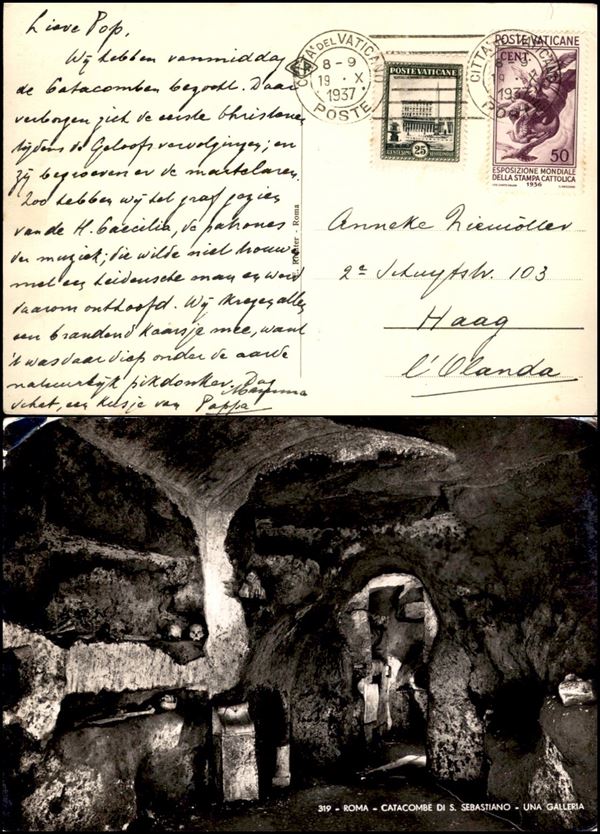 Lieve Pop,
Wij hebben vanmiddag
de Catacomben bezocht. Daar
verborgen zich de eerste Christenen
tijdens de Geloofsvervolgingen; en
zij begroeven er de martelaren.
Zoo hebben wij het graf gezien
van de H. Caecilia, de patrones
der muziek; die wilde niet trouwen
met een heidensche man en werd
daarom onthoofd. Wij kregen allen
een brandend kaarsje mee, want
't was daar diep onder de aarde
natuurlijk pikdonker. Dag
schat, een kusje van Mamma
Pappa
CITTA' DEL VATICANO
8-9
19 . X
1937
POSTE
POSTE VATICANE
25
CENTESIMI
CITTA' DEL VATICANO
8-9
19 . X
1937
POSTE
POSTE VATICANE
CENT.
50
ESPOSIZIONE MONDIALE
DELLA STAMPA CATTOLICA
1936
Roma
Anneke Niemöller
2e Schuytstr. 103
Haag
l'Olanda
319 - ROMA - CATACOMBE DI S. SEBASTIANO - UNA GALLERIA